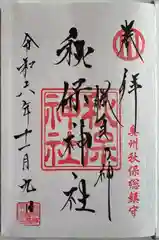 奉拝
奥州秋保総鎮守
の神
秋保神社
秋保神社
令和六年十一月九日